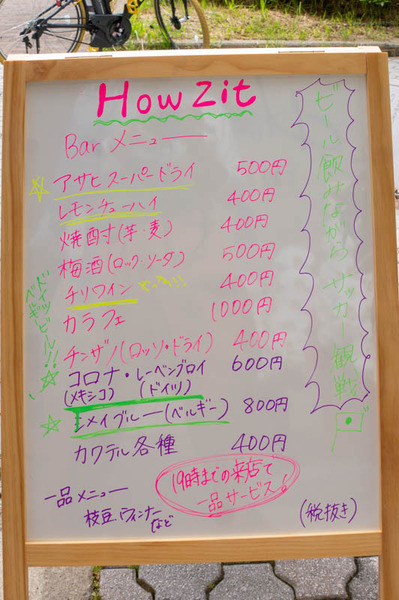 HowZit
Bar メニュー
アサヒスーパードライ 500円
レモンチューハイ 400円
焼酎(芋・麦) 400円
梅酒(ロック・ソーダ) 500円
チリワイン 400円
カラフェ 1000円
チンザノ(ロッソ・ドライ) 400円
コロナ・レーベンブロイ 600円
(メキシコ) (ドイツ)
シメイブルー(ベルギー) 800円
カクテル各種 400円
19時までの来店で
一品サービス!
一品メニュー
枝豆 ウィンナー
など
(税抜き)
ビール飲みながらサッカー観戦